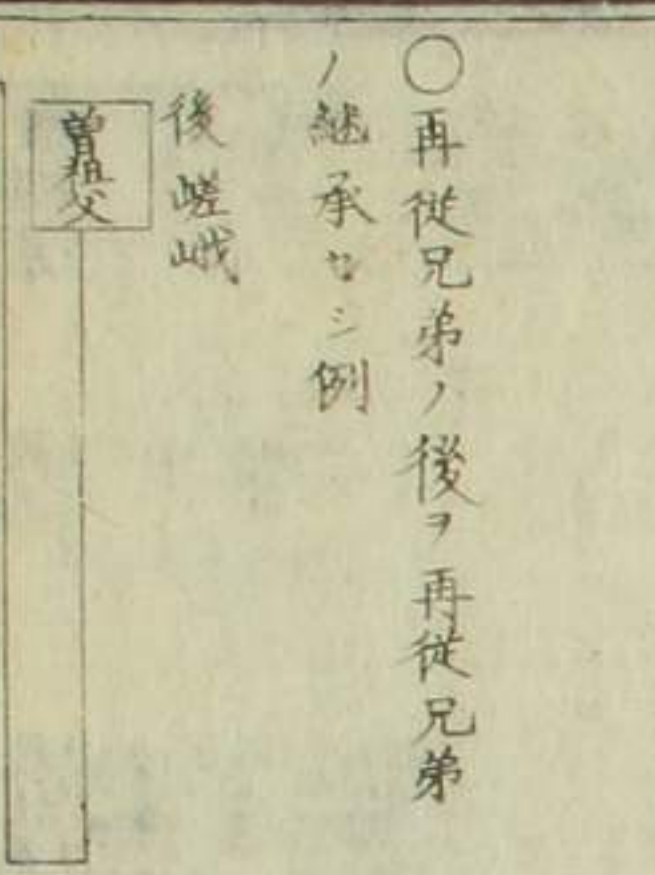 ○再從兄弟ノ後ヲ再從兄弟
ノ継承セシ例
後嵯峨
曽祖父